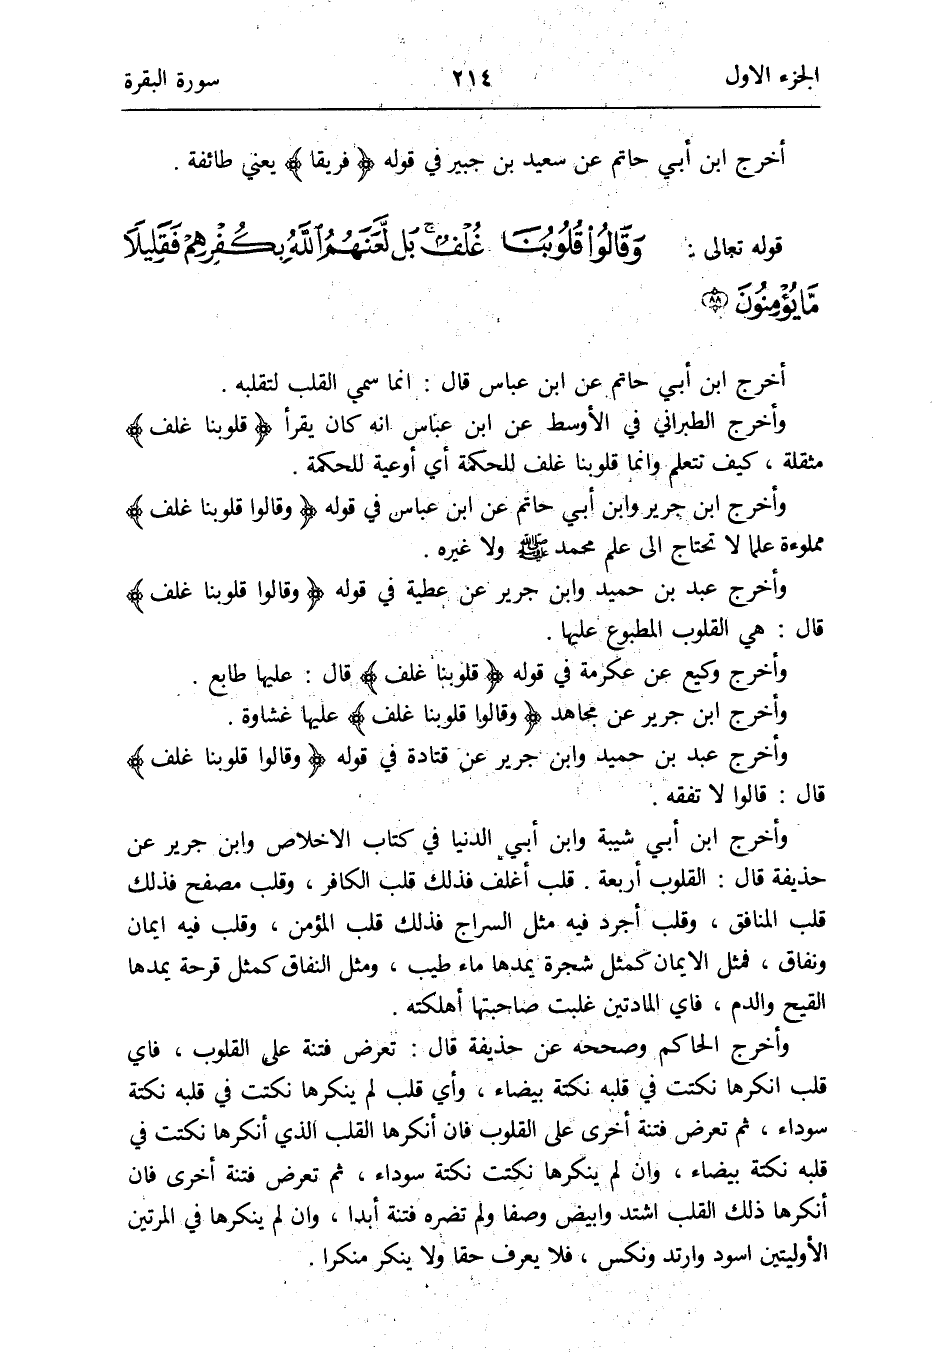 الجزء الاول ٢١٤ سورة البقرة
أخرج ابن أبي حاتم عن سعيد بن جبير في قوله ﴿ فريقا ﴾ يعني طائفة .
قوله تعالى : وَقَالُوا۟ قُلُوبُنَا غُلْفٌۢ ۚ بَل لَّعَنَهُمُ ٱللَّهُ بِكُفْرِهِمْ فَقَلِيلًا
مَّا يُؤْمِنُونَ ٨٨
أخرج ابن أبي حاتم عن ابن عباس قال : انما سمي القلب لتقلبه .
وأخرج الطبراني في الأوسط عن ابن عباس انه كان يقرأ ﴿ قلوبنا غلف ﴾
مثقلة ، كيف تتعلم وانما قلوبنا غلف للحكمة أي أوعية للحكمة .
وأخرج ابن جرير وابن أبي حاتم عن ابن عباس في قوله ﴿ وقالوا قلوبنا غلف ﴾
مملوءة علما لا تحتاج الى علم محمد ﷺ ولا غيره .
وأخرج عبد بن حميد وابن جرير عن عطية في قوله ﴿ وقالوا قلوبنا غلف ﴾
قال : هي القلوب المطبوع عليها .
وأخرج وكيع عن عكرمة في قوله ﴿ قلوبنا غلف ﴾ قال : عليها طابع .
وأخرج ابن جرير عن مجاهد ﴿ وقالوا قلوبنا غلف ﴾ عليها غشاوة .
وأخرج عبد بن حميد وابن جرير عن قتادة في قوله ﴿ وقالوا قلوبنا غلف ﴾
قال : قالوا لا تفقه .
وأخرج ابن أبي شيبة وابن أبي الدنيا في كتاب الاخلاص وابن جرير عن
حذيفة قال : القلوب أربعة . قلب أغلف فذلك قلب الكافر ، وقلب مصفح فذلك
قلب المنافق ، وقلب أجرد فيه مثل السراج فذلك قلب المؤمن ، وقلب فيه ايمان
ونفاق ، فمثل الايمان كمثل شجرة يمدها ماء طيب ، ومثل النفاق كمثل قرحة يمدها
القيح والدم ، فاي المادتين غلبت صاحبتها أهلكته .
وأخرج الحاكم وصححه عن حذيفة قال : تعرض فتنة على القلوب ، فاي
قلب انكرها نكتت في قلبه نكتة بيضاء ، وأي قلب لم ينكرها نكتت في قلبه نكتة
سوداء ، ثم تعرض فتنة أخرى على القلوب فان أنكرها القلب الذي أنكرها نكتت في
قلبه نكتة بيضاء ، وان لم ينكرها نكتت نكتة سوداء ، ثم تعرض فتنة أخرى فان
أنكرها ذلك القلب اشتد وابيض وصفا ولم تضره فتنة أبدا ، وان لم ينكرها في المرتين
الأوليتين اسود وارتد ونكس ، فلا يعرف حقا ولا ينكر منكرا .